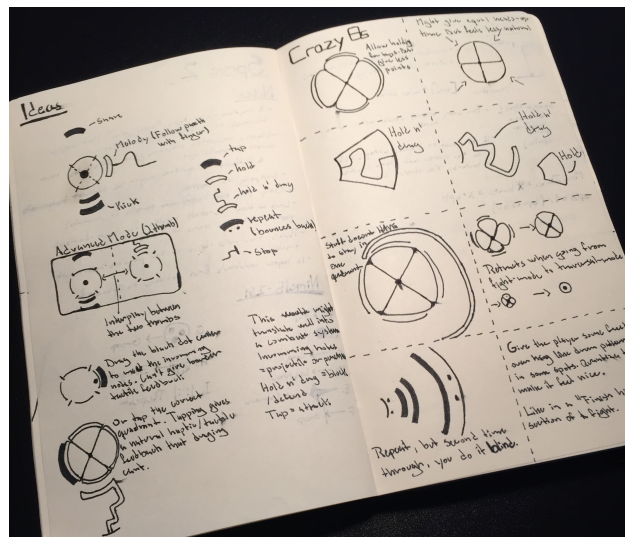 Ideas
- snare
Melody (Follow path
with finger)
- Kick
- tap
- hold
- hold n' drag
- repeat
(bounces back)
- Stop
Advanced Mode (2 thumb)
Interplay between
the two thumbs
Drag the black dot
to meet the incoming
notes. Can't give
tactile feedback
Or tap the correct
quadrant. Tapping gives
a natural haptic/tactile
feedback that dragging
can't.
This might
translate well into
a combat system
Incoming notes
= projectile or
Hold n' drag = block
/ defend
Tap = attack
Crazy 8s
Allow holding
points
Might give equal heads-up
time but feels less natural
Hold n'
drag
Hold n'
drag
Hold
Stuff doesn't HAVE
to stay in
one
quadrant
Retracts when going from
fight-mode to traversal-mode
Repeat, but second time
through, you do it blind.
Give the player some
over
in some spots.
make it feel nice.
Like in a "Finish
section of a fight.